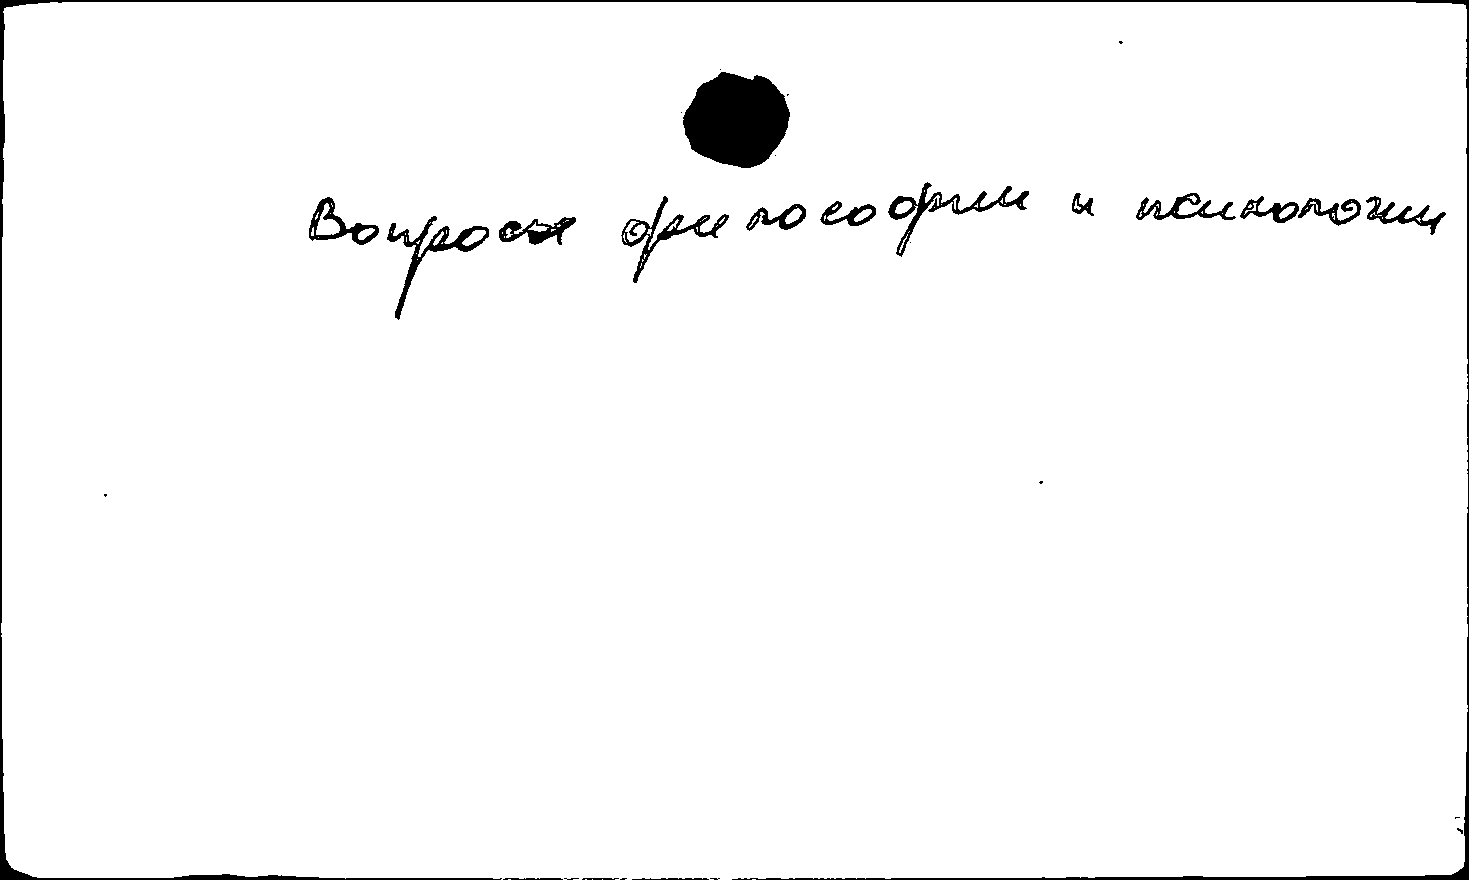 Вопросы философии и психологии